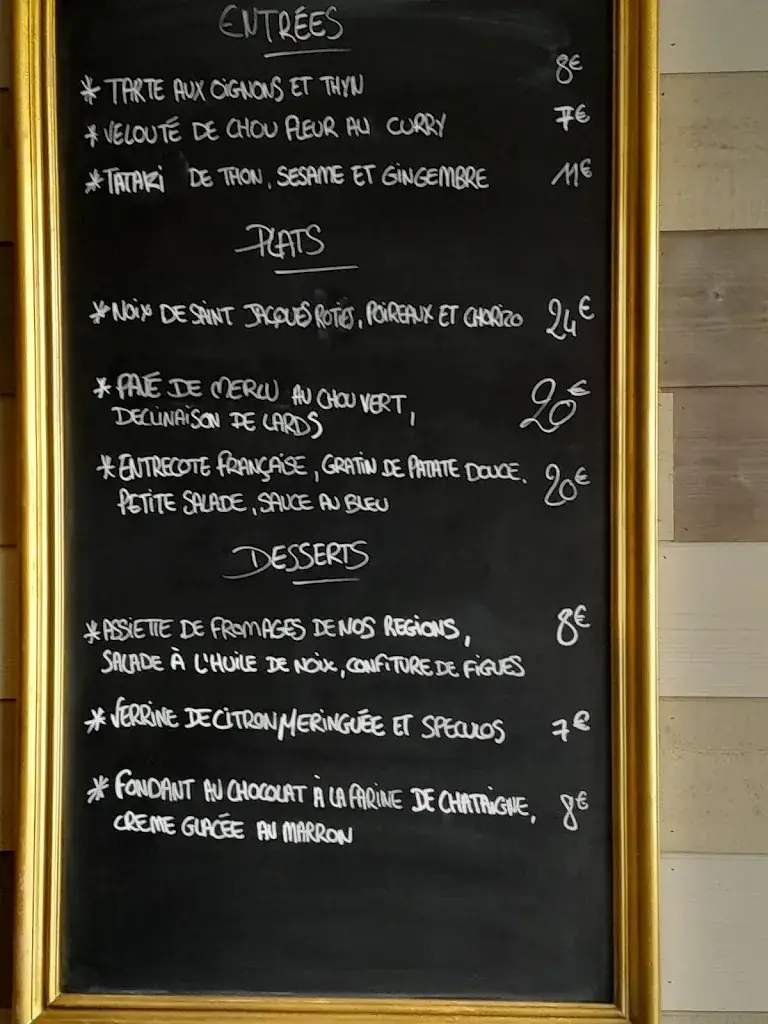 ENTRÉES
* TARTE AUX OIGNONS ET THYN 8€
* VELOUTÉ DE CHOU FLEUR AU CURRY 7€
* TATAKI DE THON, SESAME ET GINGEMBRE 11€
PLATS
* NOIX DE SAINT JACQUES ROTIES, POIREAUX ET CHORIZO 24€
* PAVÉ DE MERLU AU CHOU VERT, 20€
DECLINAISON DE LARDS
* ENTRECOTE FRANÇAISE, GRATIN DE PATATE DOUCE. 20€
PETITE SALADE, SAUCE AU BLEU
DESSERTS
* ASSIETTE DE FROMAGES DE NOS REGIONS, 8€
SALADE À L'HUILE DE NOIX, CONFITURE DE FIGUES
* VERRINE DE CITRON MERINGUÉE ET SPECULOS 7€
* FONDANT AU CHOCOLAT À LA FARINE DE CHATAIGNE, 8€
CREME GLACÉE AU MARRON